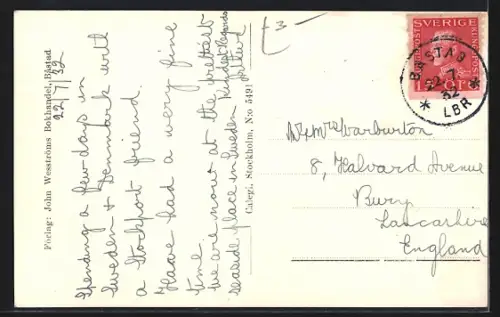 Förlag: John Wesströms Bokhandel, Båstad
22/7/32
Spending a few days in
Sweden + Denmark with
a Stockport friend.
Have had a very fine
time.
We are now at the prettiest
seaside place in Sweden
Kindest Regards
Calegi, Stockholm, N:o 5491
£3-
SVERIGE
BÅSTAD
22.7.
32
LBR
Mr & Mrs Warburton
8, Halvard Avenue
Bury
Lancashire
England